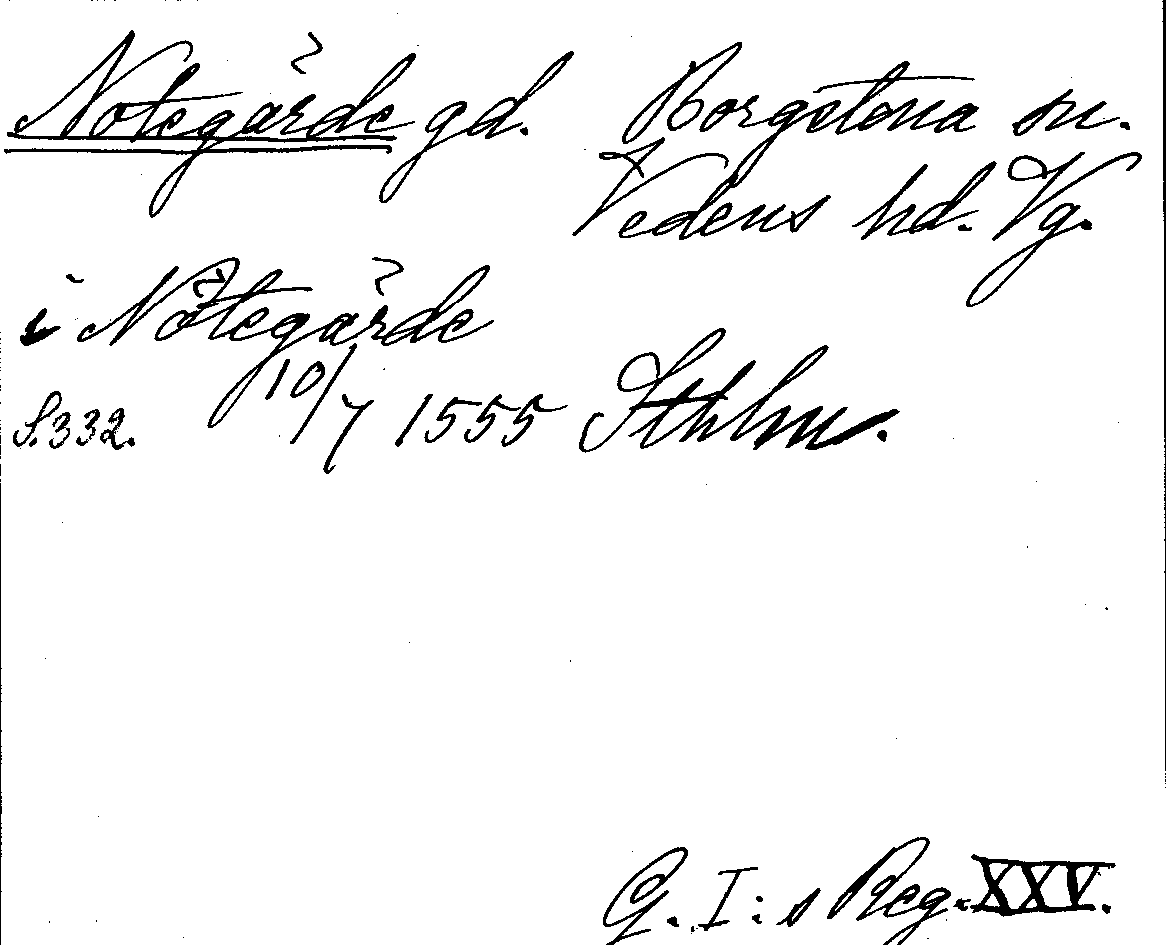 Notegärde gd. Borgstena sn.
Vedens hd. Vg.
i Nötegärde
S. 332. 10/7 1555 Sthlm.
G. I:s Reg. XXV.